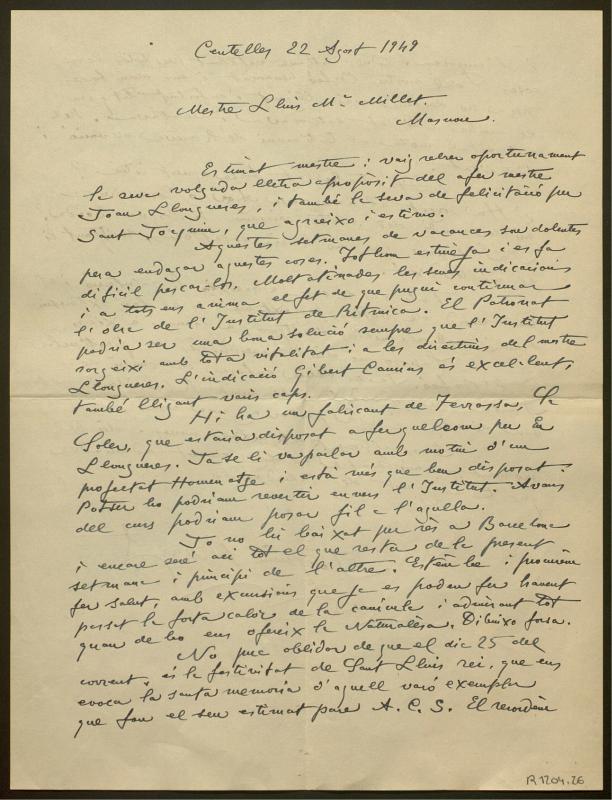 Centelles 22 Agost 1949
Mestre Lluis Mª Millet.
Masnou.
Estimat mestre: vaig rebre oportunament
la seva volguda lletra apropòsit del afer mestre
Joan Llongueres, i també la seva de felicitació per
Sant Joaquim, que agraeixo i estimo.
Aquestes setmanes de vacances son dolentes
pera endagar aquestes coses. Tothom estiueja i es fa
dificil pescar-los. Molt atinades les seves indicacions
i a tots ens anima el fet de que pugui continuar
l'obra de l'Institut de Ritmica. El Patronat
podria ser una bona solució sempre que l'Institut
sorgeixi amb tota vitalitat i a les directrius del mestre
Llongueres. L'indicació Gibert Camins és excel·lent,
també lligant varis caps.
Hi ha un fabricant de Terrassa, Sr
Soler, que estaria disposat a fer quelcom per En
Llongueres. Ja se li va parlar amb motiu d'un
projectat Homenatge i està més que ben disposat.
Potser ho podriam revertir envers l'Institut. Avans
del curs podriam posar fil a l'agulla.
Jo no hi baixat per rès a Barcelona
i encare seré aci tot el que resta de la present
setmana i principi de l'altre. Estèm be i procurèm
fer salut, amb excursions que ja es poden fer havent
passat la forta calor de la canicula i admirant tot
quan de bo ens ofereix la Naturalesa. Dibuixo força.
No puc oblidar de que el dia 25 del
corrent, és la festivitat de Sant Lluis rei, que ens
evoca la santa memoria d'aquell varó exemplar
que fou el seu estimat pare A. C. S. El recordèm
R 1204.26